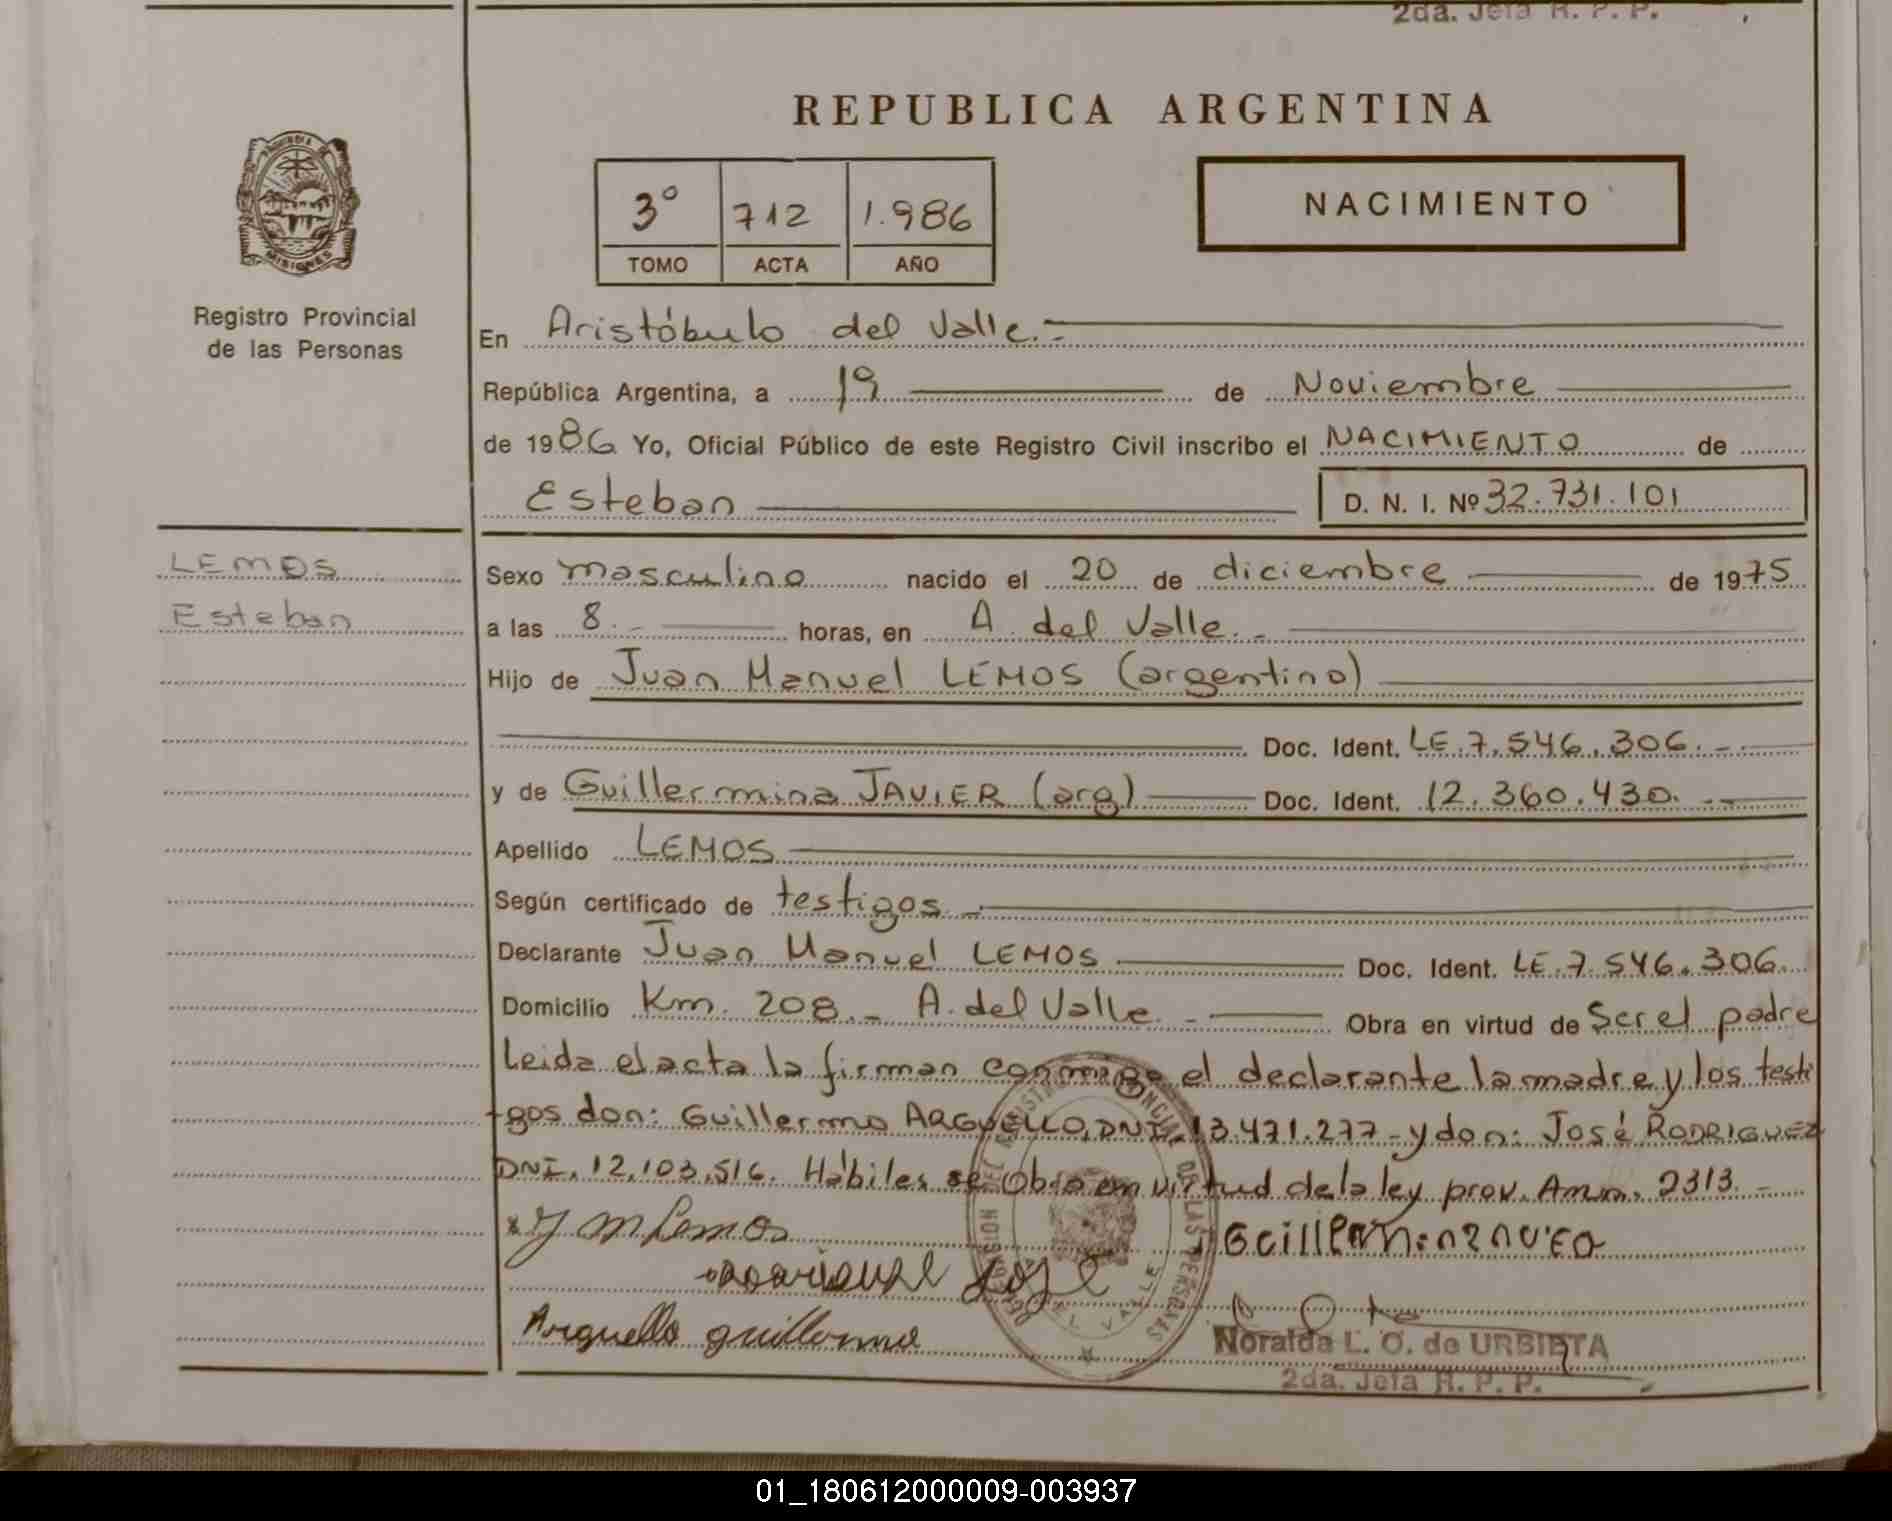 2da. Jefa R. P. P.
REPUBLICA ARGENTINA
3º 712 1.986
TOMO ACTA AÑO
NACIMIENTO
MISIONES
Registro Provincial
de las Personas
En Aristóbulo del Valle.-
República Argentina, a 19 de Noviembre
de 1986 Yo, Oficial Público de este Registro Civil inscribo el NACIMIENTO de
Esteban D. N. I. Nº 32.731.101
LEMOS
Esteban
Sexo masculino nacido el 20 de diciembre de 1975
a las 8.- horas, en A. del Valle.-
Hijo de Juan Manuel LEMOS (argentino)
Doc. Ident. LE.7.546.306.-
y de Guillermina JAVIER (arg) Doc. Ident. 12.360.430.-
Apellido LEMOS
Según certificado de testigos.-
Declarante Juan Manuel LEMOS Doc. Ident. LE.7.546.306.
Domicilio Km. 208.- A. del Valle.- Obra en virtud de Ser el padre
Leida el acta la firman conmigo el declarante la madre y los testi
-gos don: Guillermo ARGUELLO, DNI. 13.471.277- y don: José RODRIGUEZ
DNI. 12.103.516. Hábiles se Obra en virtud de la ley prov. Amn. 2313.-
x J M Lemos
José
Arguello guillermo
Noralda L. O. de URBIETA
2da. Jefa R. P. P.
DEL VALLE
01_180612000009-003937